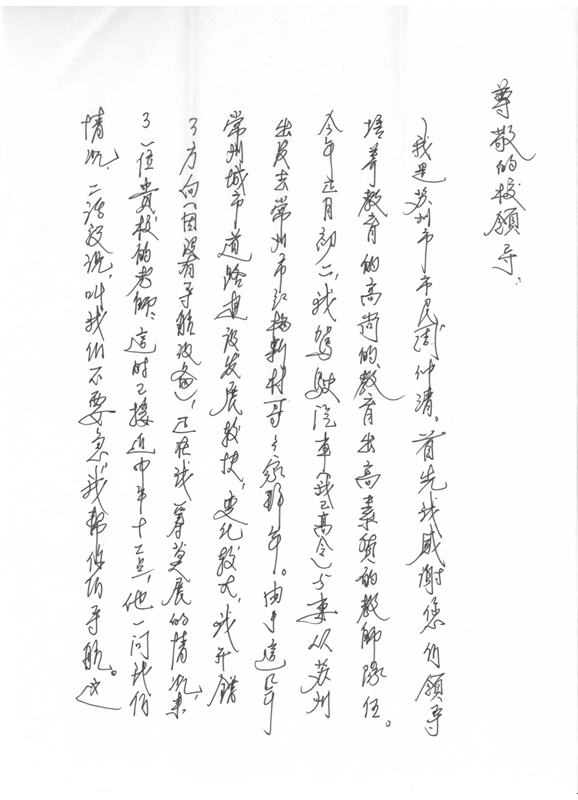 尊敬的校領导：
我是苏州市市民周仲清。首先我感謝您们領导
培养教育的高尚的教育出高素質的教師隊伍。
今年正月初二，我駕駛汽車（我已高令）与妻从苏州
出发去常州市红梅新村哥哥家拜年。由于這几年
常州城市道路建设发展較快，变化較大，我开錯
了方向（因没有导航设备），正在我一筹莫展的情况，来
了一位貴校的老師。這时已接近中午十二点，他一问我们
情况，二话没说，叫我们不要急“我帮你们导航”。